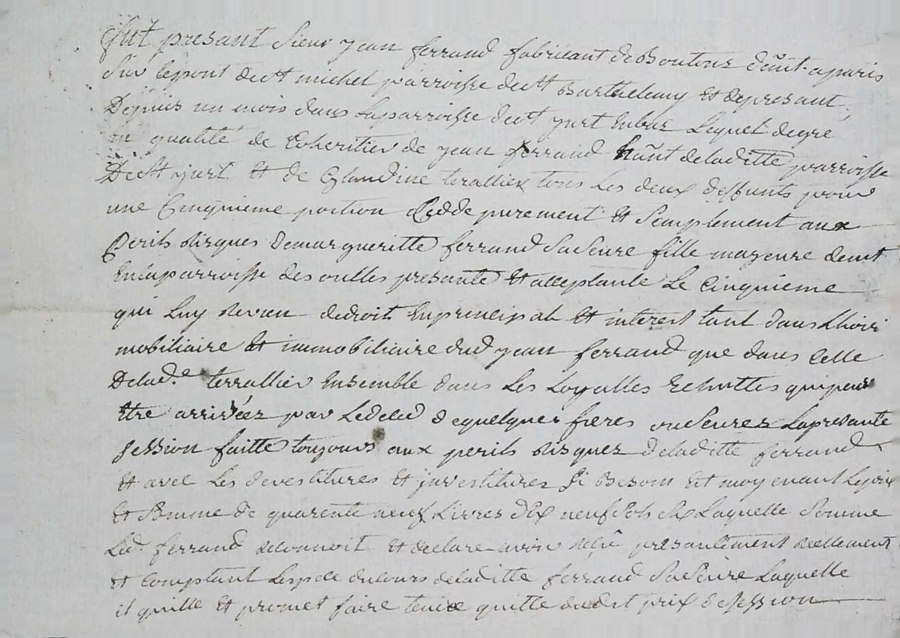 fut presant sieur jean ferrand fabricant de Boutons demt a paris
sur le pont de st michel parroisse de st Barthelemy et de presant
Depuis un mois dans la parroisse de st just en bas Lequel de gré
en qualité de Coheritier de jean ferrand ht de laditte parroisse
De st just et de Claudine terallier tous Les deux deffunts pour
une Cinquieme portion Cedde purement et Simplement aux
Perils Risques de margueritte ferrand Sa Seure fille mageure demt
En la parroisse des oulles presante et acceptante Le Cinquieme
qui Luy Revien de droit En principal et interest tant dans Lhoiri
mobiliaire et immobiliaire dud jean ferrand que dans Celle
De lad.e terrallier Ensemble dans Les Loyalles Echuttes qui peuv
Etre arrivéez par Le deced de quelquez freres ou Seurez La presante
session faitte toujours aux perils Risquez de laditte ferrand
et avec Les devestitures et jnvestitures Si Besoin Est moyenant Le prix
et Somme de quarente neuf Livres dix neuf sols six Laquelle Somme
Led. ferrand Reconnoit et declare avoir Reçu presantement Reellement
et Comptant Espece du Cours de laditte ferrand Sa Seure Laquelle
il quitte et promet faire tenir quitte dudt prix de session